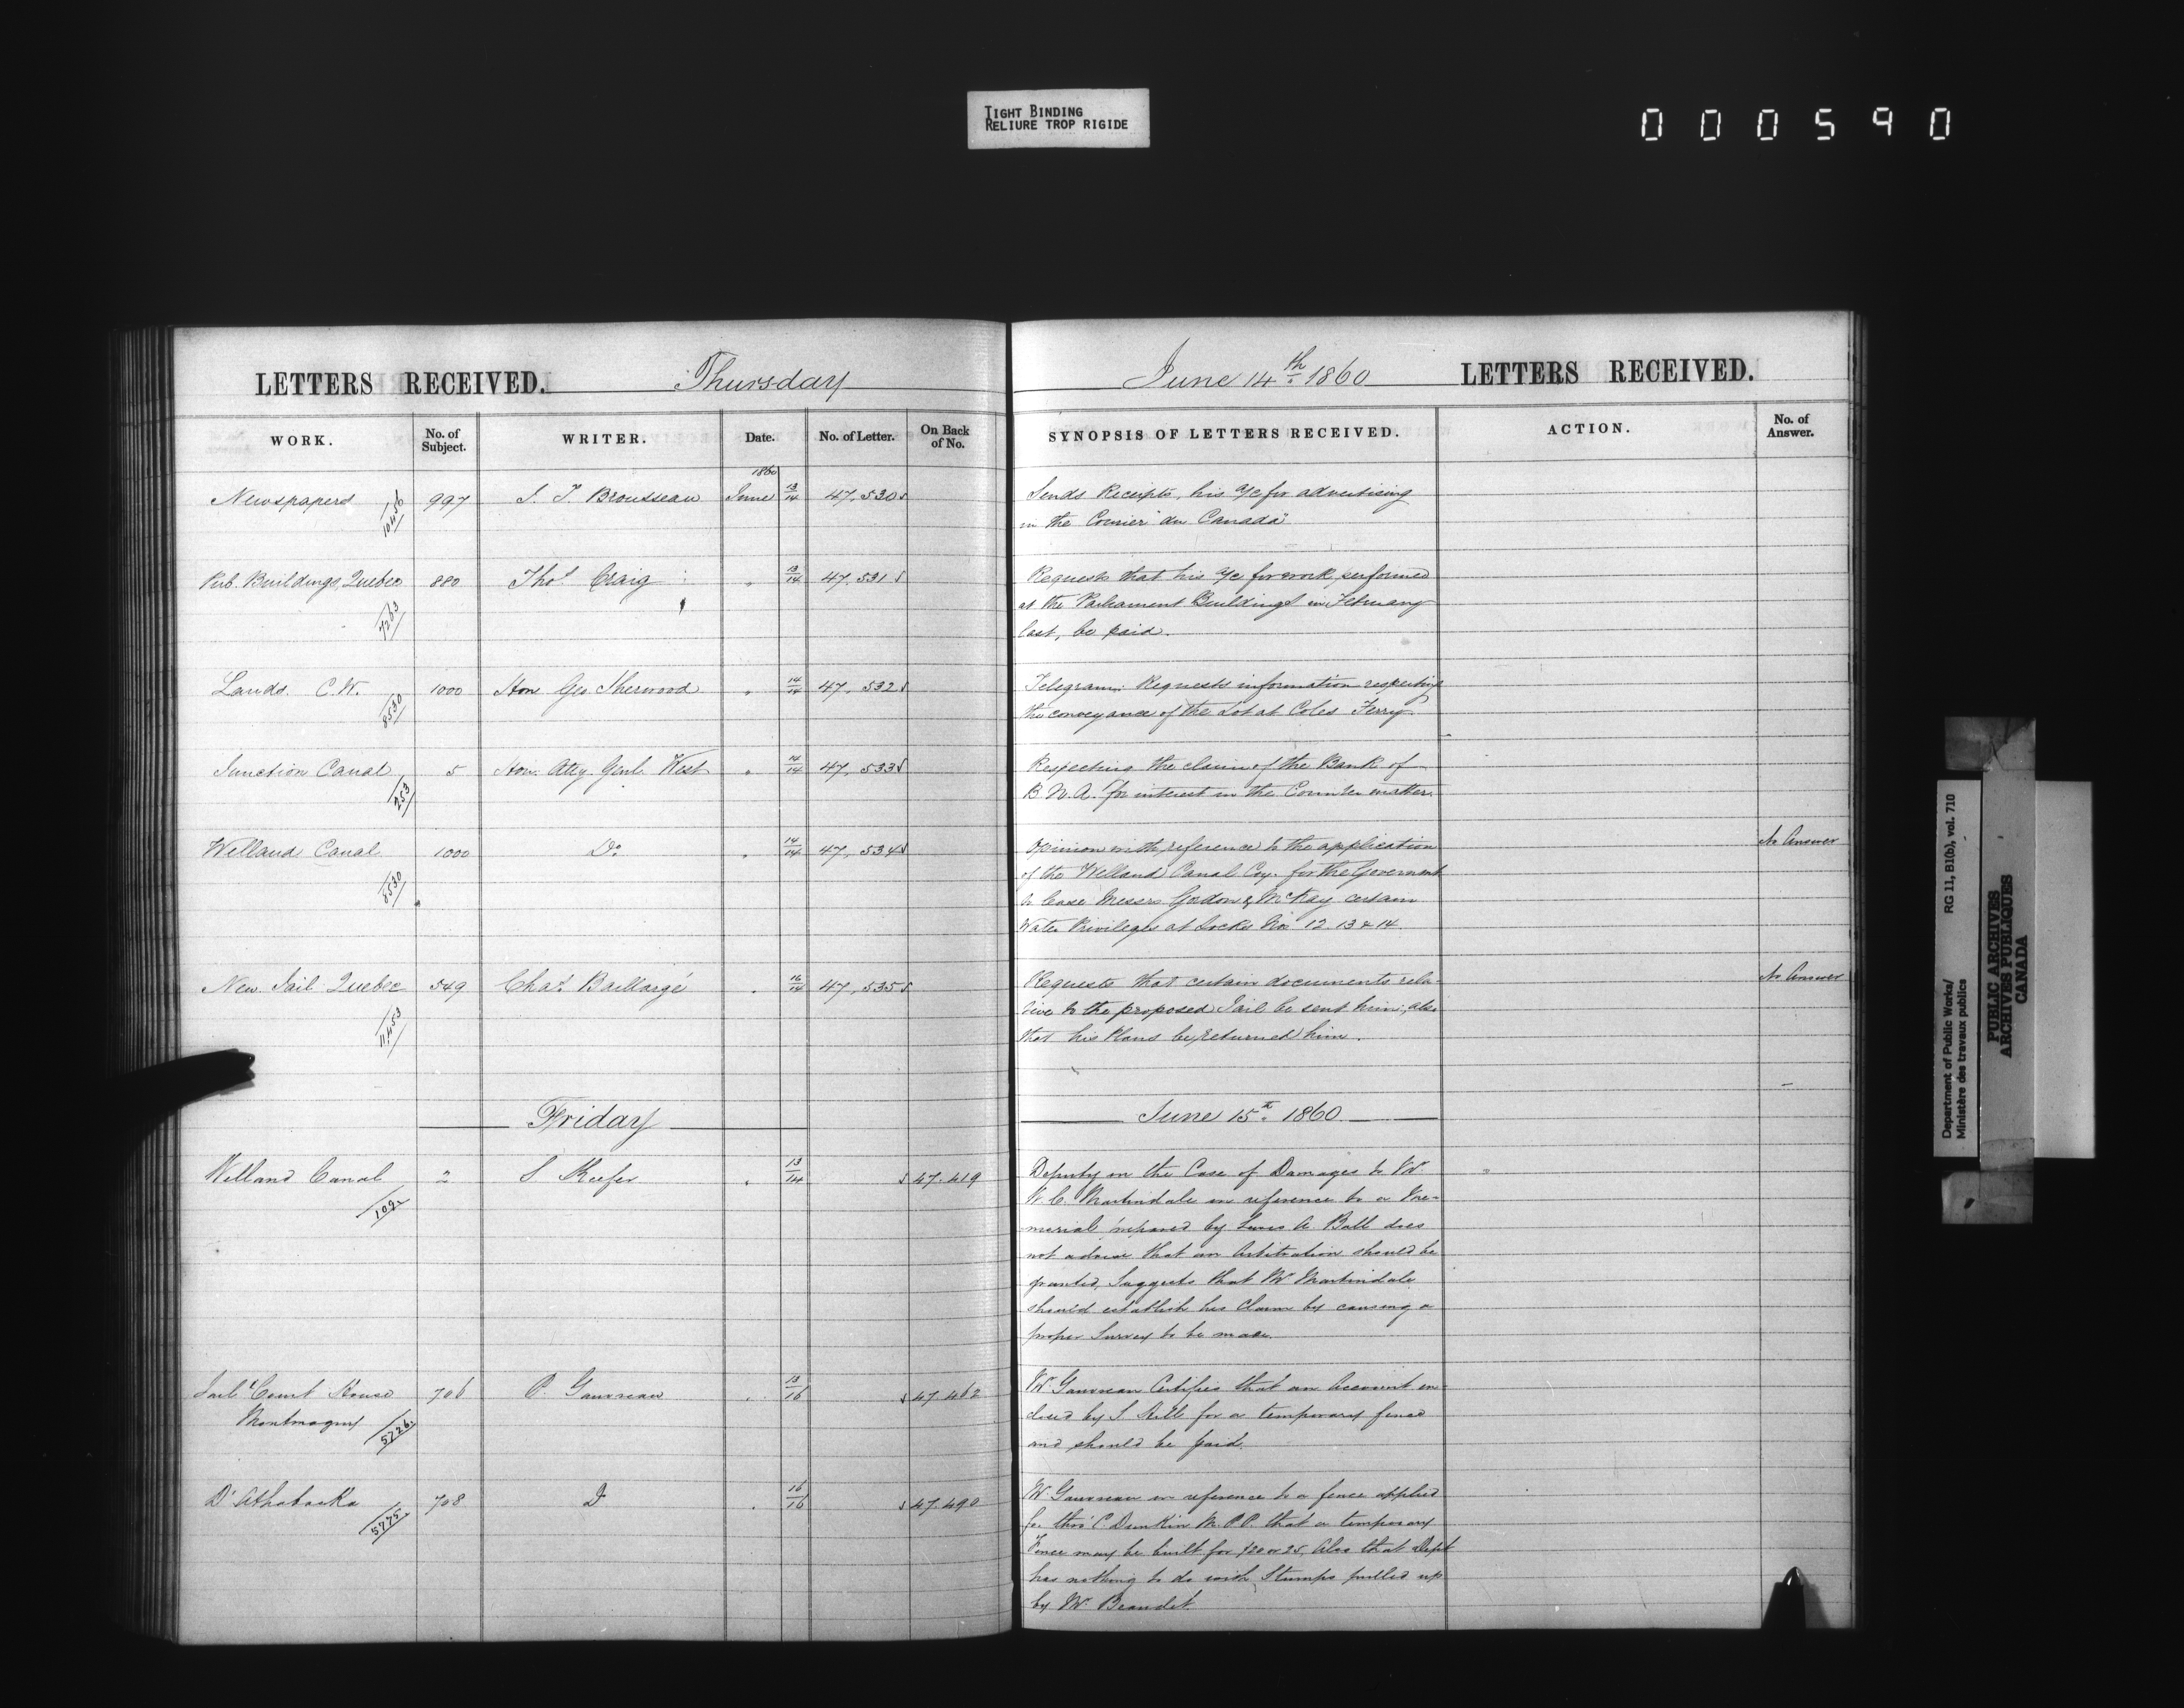 TIGHT BINDING
RELIURE TROP RIGIDE
000590
LETTERS RECEIVED. Thursday
WORK. No. of Subject. WRITER. Date. No. of Letter. On Back of No.
1860
Newspapers 997 J. T. Brousseau June 13/14 47,530
10456
Pub. Buildings, Quebec 880 Thos Craig " 13/14 47,531
7263
Lands C.W. 1000 Hon Geo. Sherwood " 14/14 47,532
8530
Junction Canal 5 Hon. Atty. Genl. West " 14/14 47,533
253
Welland Canal 1000 Do " 14/14 47,534
8530
New Jail Quebec 549 Chas Baillargé " 16/14 47,535
11,453
Friday
Welland Canal 2 S Keefer " 13/14 47.419
109
Jail & Court House 706 P. Gauvreau " 13/16 47.462
Montmagny
5726
Do Athabaska 708 Do " 16/16 47.490
5775
June 14th 1860 LETTERS RECEIVED.
SYNOPSIS OF LETTERS RECEIVED. ACTION. No. of Answer.
Sends Receipts, his a/c for advertising
in the Courier "du Canada"
Requests that his a/c for work performed
at the Parliament Buildings in February
last, be paid.
Telegram: Requests information respecting
the conveyance of the Lot at Coles Ferry
Respecting the claim of the Bank of
B.N.A. for interest in the matter.
Opinion with reference to the application No Answer
of the Welland Canal Coy. for the Government
to lease Messrs Gordon & McKay certain
Water Privileges at Locks Nos 12. 13 & 14.
Requests that certain documents rela- No Answer
tive to the proposed Jail be sent him; also
that his Plans be returned him.
June 15th 1860
Deputy on the Case of Damages to Mr
W. C. Martindale in reference to a Me-
morial prepared by Lewis A. Ball does
not advise that an Arbitration should be
granted, Suggests that Mr Martindale
should establish his Claim by causing a
proper Survey to be made.
Mr Gauvreau Certifies that an Account en-
closed by S for a temporary fence
and should be paid.
Mr Gauvreau in reference to a fence applied
for thro' C. Dunkin M.P.P. that a temporary
Fence may be built for $20 or 25, Also that Dept
has nothing to do with Stumps pulled up
by Mr Beaudet.
Department of Public Works/
Ministère des travaux publics
RG 11, B1(b), vol. 710
PUBLIC ARCHIVES
ARCHIVES PUBLIQUES
CANADA